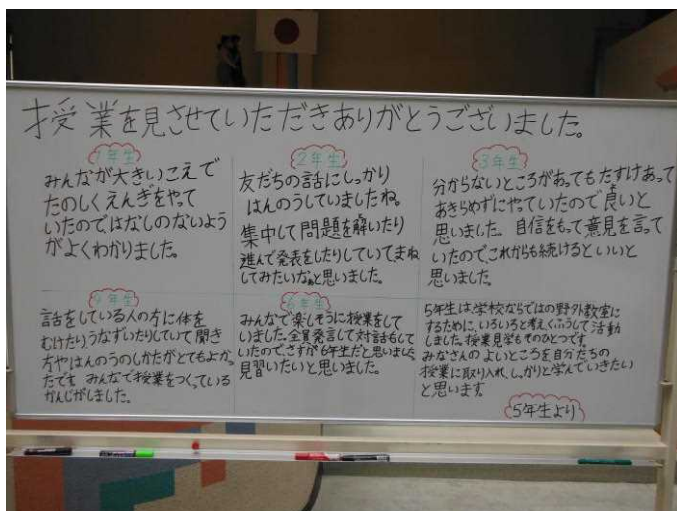 授業を見させていただきありがとうございました。
1年生
みんなが大きいこえで
たのしくえんぎをやって
いたのではなしのないよう
がよくわかりました。
2年生
友だちの話にしっかり
はんのうしていましたね。
集中して問題を解いたり
進んで発表をしたりしていて、まね
してみたいなぁと思いました。
3年生
分からないところがあってもたすけあって
あきらめずにやていたので良いと
思いました。自信をもって意見を言って
いたので、これからも続けるといいと
思いました。
4年生
話をしている人の方に体を
むけたり、うなずいたりしていて聞き
方やはんのうのしかたがとてもよかっ
たです みんなで授業をつくっている
かんじがしました。
6年生
みんなで楽しそうに授業をして
いました。全員発言して対話もして
いたので、さすが6年生だと思いました
見習いたいと思いました。
5年生は、学校ならではの野外教室に
するために、いろいろと考え、くふうして活動
しました。授業見学もそのひとつです。
みなさんのよいところを自分たちの
授業に取り入れ、しっかりと学んでいきたい
と思います。
5年生より